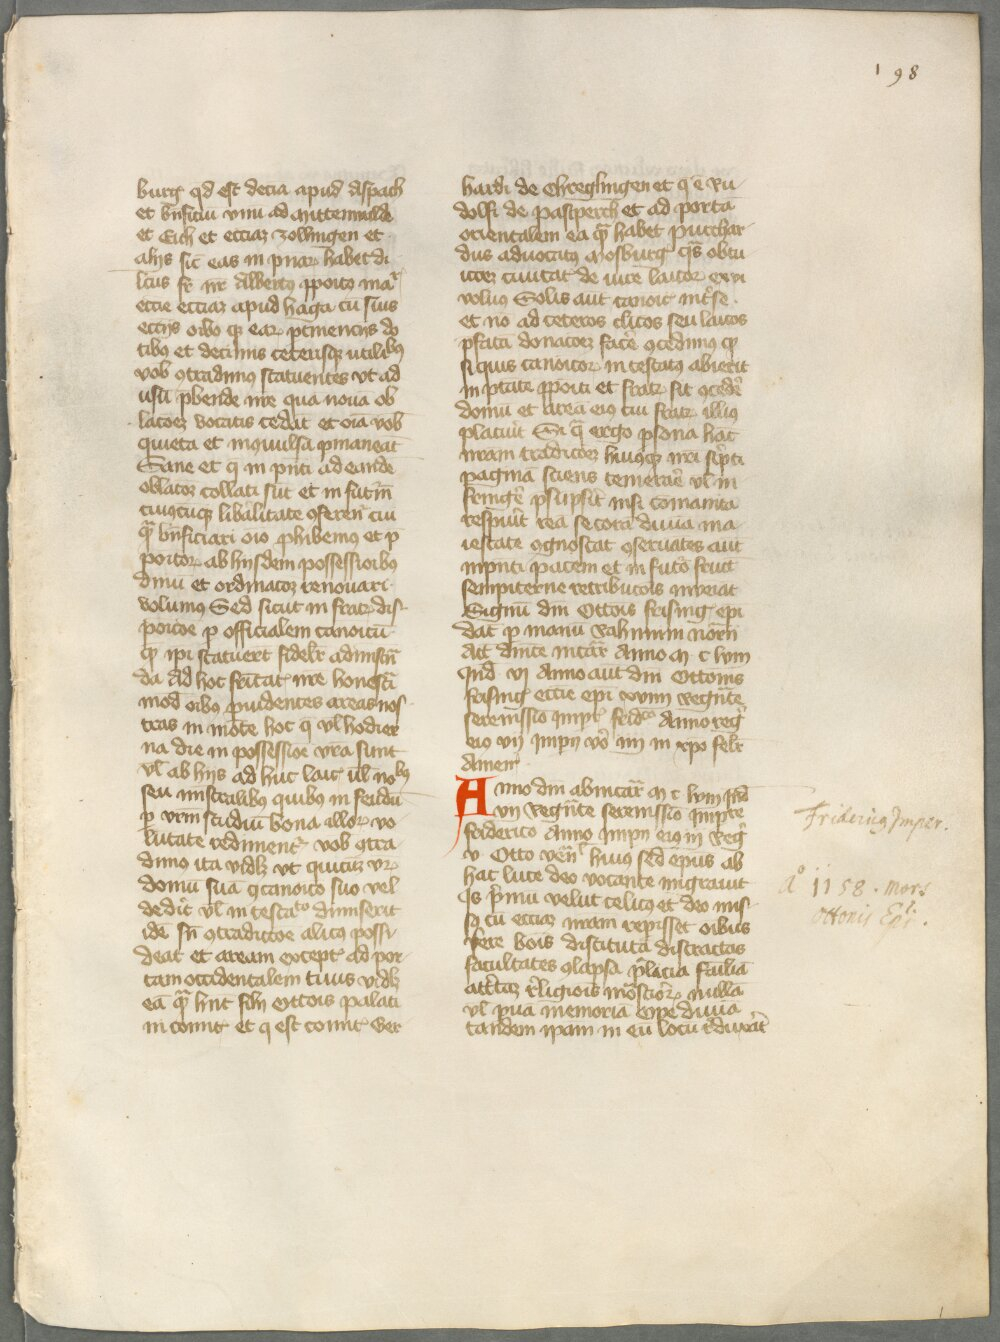 198
burg qd est decia apud Aspach
et bnficiu vnu ad mittenwalde
et Eich et eccias zollingen et
alijs sic eas in pnar habet di
lcus fr nr Albertus ppoitus ma
eccie eccias apud haga cu suis
ecciis oibo qz ear ptinencijs do
tibus et decimis ceterisqz utilibus
vob qtradimus statuentes vt ad
usu pbende nre qua noua ob
lacoez vocatis cedat et oia vob
quieta et inqvulsa pmaneat
Sane et q in pnti ad eande
oblacoz collati sut et in futur
cuiuscuqz libalitate qferen cui
qua bnficiari oio phibemus et p
poitor ab hijsdem possessioibus
dnm et ordinacoz renouari
volumus Sed sicut in fratr dis
poicoe p officialem canoicu
qz ipi statuert fidelr administr
da Ad hoc frnitat nre honesti
mod oibus prudentes areas nos
tras in monte hoc q vl hodier
na die in possessioe vra sunt
vl ab hijs ad huc laic vl nobus
seu mistralibus quibus in feudu
p vrm studiu bona illor vo
luntate rediment vob qtra
dimus ita vidlz vt quicuz vr
domu sua qcanoico suo vel
dedit vl in testato dimiserit
ide sn qtradictoe alicus possi
deat et aream except ad por
tam occidentalem cuius vidlz
ea qua hnt filij Ottois palati
in comit et q est comit Ger
hardi de Chreglingen et q e Ru
dolfi de pastperch et ad porta
orientalem ea qua habet purchar
dus aduocatus mosburg qs obtu
volius Solis aut canoic
et no ad ceteros clicos seu laicos
pfata donacoez face qcedimus qz
si quis canoicor intestatus abierit
in ptate ppoiti et fratr sit qcede
domu et area eius cui fratr illius
platuit Si q ergo psona hac
nram tradicoez huiusqz nri scpti
pagina sciens temerare vl in
fringe psupsit nisi comonita
respuit rea se cora diuina ma
iestate qgnoscat qseruates aut
inpnti pacem et in futo fruct
sempiterne retribucois inveniat
Signu dni Ottois frising epi
dat p manu Rahwini notrij
Act dnice incar Anno m c lviii
Ind vi Anno aut dni Ottonis
frising ecctie epi xxiiii Regnte
serenissio Impte fridco Anno reg
eius vii Impij vo iiii in xpo felr
Amen
Anno dni abincar m c lviii Ind
vii Regnte serenissio Impre
friderico Anno Impij eius iii Reg
v Otto ven huius sed epus ab
hac luce deo vocante migrauit
qs primu velut celicus et deo mis
sus cu eccias nram repisset oibus
fere bois distituta distractas
facultates qlapsa placia familia
attritaz religiois monsterior nullam
vl pua memoria ope diuina
tandem ipam in eu locu rduxit
Fridericus Imper.
Ao 1158. mors
Ottonis Epi.